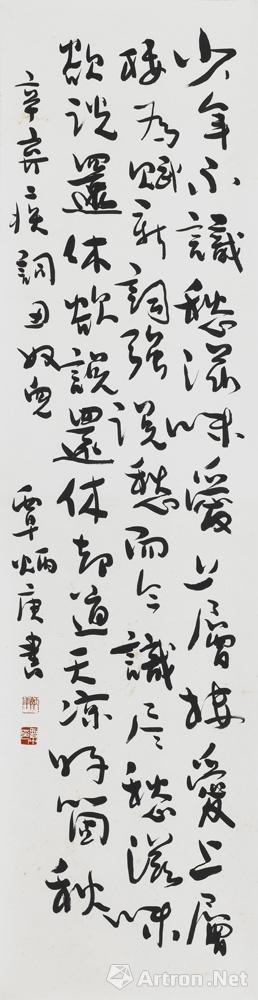 少年不識愁滋味愛上層樓愛上層
樓為賦新詞強說愁而今識盡愁滋味
欲說還休欲說還休却道天涼好箇秋
辛棄疾詞丑奴兒 覃炳庚書
Artron.Net